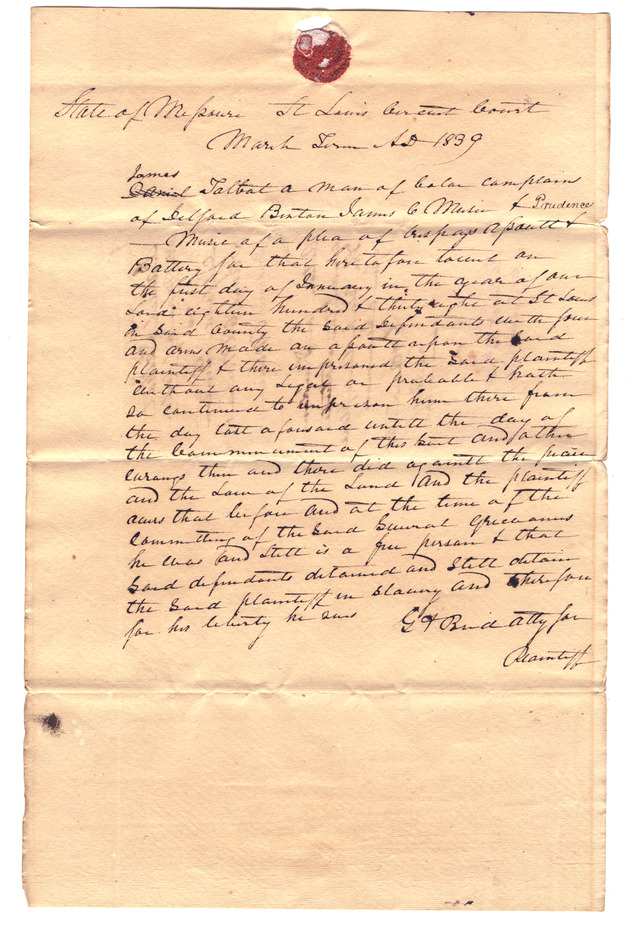 State of Missouri St Louis Circuit Court
March Term AD 1839
James
Daniel Talbot a man of Color complains
of Delford Benton James C Music & Prudence
Music of a plea of trespass assault &
Battery for that heretofore towit on
the first day of January in the year of our
Lord eighteen hundred & thirty eight at St Louis
in Said County the Said defendants with force
and arms made an assault upon the Said
plaintiff & there imprisoned the Said plaintiff
without any Legal or probable & hath
so continued to imprison him there from
the day last aforesaid untill the day of
the Commencement of this Suit and other
wrongs then and there did against the peace
and the Law of the Land and the plaintiff
avers that before and at the time of the
Committing of the Said Several Grievances
he was and Still is a free person & that
Said defendants detained and Still detain
the Said plaintiff in Slavery and therefore
for his liberty he sues G A Bird Atty for
Plaintiff